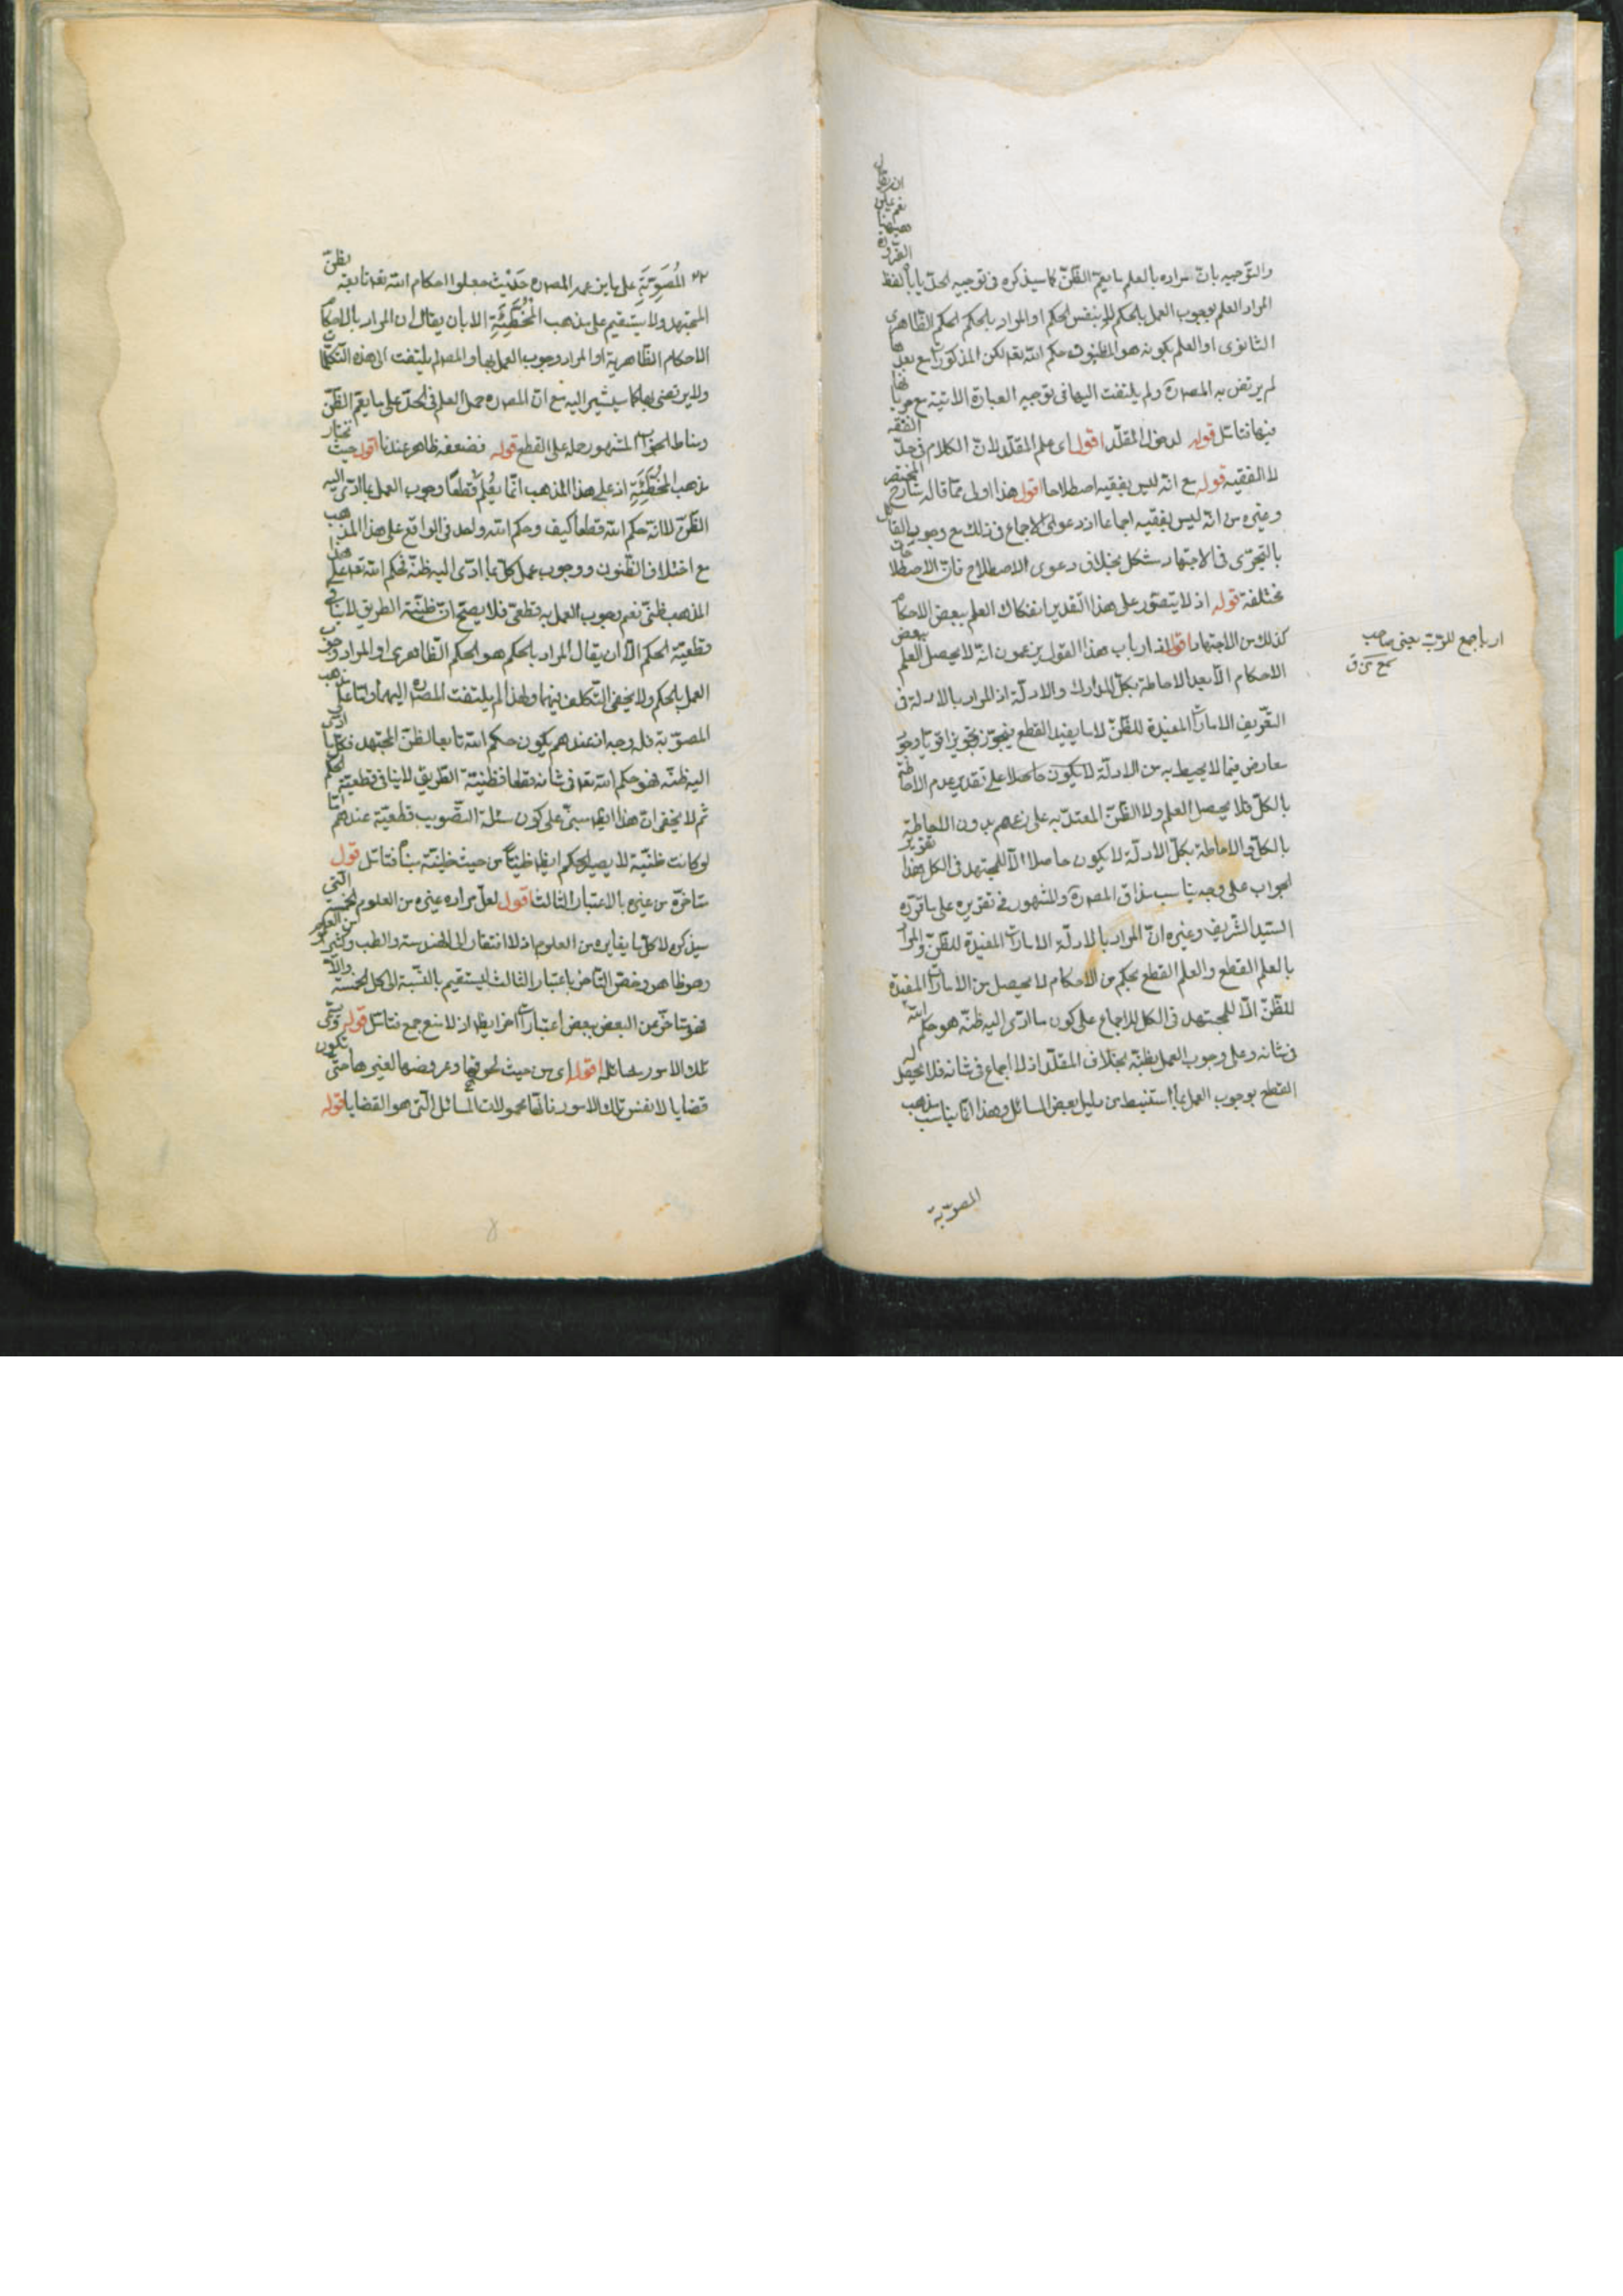 والتوجيه بان مراده بالعلم ما يعم الظن كما سيذكره فى توجيه الحد يأباه لفظ
المراد العلم بوجوب العمل بالحكم لا بنفس الحكم او المراد بالحكم الحكم الظاهرى
الثانوى او العلم بكونه هو المظنون حكم الله تعه لكن المذكورات مع بعدها
لم يرتض به المصره ولم يلتفت اليها فى توجيه العبارة الاتية مع قربها
فيها فتأمل قوله لدخول المقلد اقول اى علم المقلد لان الكلام فى حد الفقه
لا الفقيه قوله مع انه ليس بفقيه اصطلاحا اقول هذا اولى مما قاله شارح المختصر
وغيره من انه ليس بفقيه اجماعا اذ دعوى الاجماع فى ذلك مع وجود القائل
بالتجزى فى الاجتهاد مشكل بخلاف دعوى الاصطلاح فان الاصطلاحات
مختلفة قوله اذ لا يتصور على هذا التقدير انفكاك العلم ببعض الاحكام
كذلك من الاجتهاد اقول اذ ارباب هذا القول يزعمون انه لا يحصل العلم ببعض
الاحكام الا بعد الاحاطة بكل المدارك والادلة اذ المراد بالادلة فى
التعريف الامارات المفيدة للظن لا ما يفيد القطع فيجوز تجويزا قويا وجود
معارض فيما لا يحيط به من الادلة لا يكون حاصلا على تقدير عدم الاحاطة
بالكل فلا يحصل العلم ولا الظن المعتد به على زعمهم بدون الاحاطة
بالكل والاحاطة بكل الادلة لا يكون حاصلا الا للمجتهد فى الكل وهذا تقرير
الجواب على وجه يناسب مذاق المصره والمشهور فى تقريره على ما قرره
السيد الشريف وغيره ان المراد بالادلة الامارات المفيدة للظن والمراد
بالعلم القطع والعلم القطع بحكم من الاحكام لا يحصل من الامارات المفيدة
للظن الا للمجتهد فى الكل للاجماع على كون ما ادى اليه ظنه هو حكم الله
فى شانه وعلى وجوب العمل بظنه بخلاف المقلد اذ لا اجماع فى شانه فلا يحصل له
القطع بوجوب العمل بما استنبط من دليل بعض المسائل وهذا انما يناسب مذهب
المصوبة
المُصَوِّبَةِ على ما يزعمه المصره حَيْث جعلوا احكام الله تعه تابعة بظن
المجتهد ولا يستقيم على مذهب المُخَطِّئَةِ الا بان يقال ان المراد بالاحكام
الاحكام الظاهرية او المراد وجوب العمل بها والمصره لم يلتفت الى هذه التكلفات
ولا يرتضى بها كما سيشير اليه مع ان المصره حمل العلم فى الحد على ما يعم الظن
ومناط الجواب المشهور حمله على القطع قوله فضعفه ظاهر عندنا اقول حيث نختار
مذهب المُخَطِّئَةِ اذ على هذا المذهب انما يعلم قطعا وجوب العمل بما ادى اليه
الظن لا انه حكم الله قطعا كيف وحكم الله واحد فى الواقع على هذا المذهب
مع اختلاف الظنون ووجوب عمل كل بما ادى اليه ظنه فحكم الله تعه على هذا
المذهب ظنى نعم وجوب العمل به قطعى فلا يصح ان ظنية الطريق لا ينافى
قطعية الحكم الا ان يقال المراد بالحكم هو الحكم الظاهرى او المراد وجوب
العمل بالحكم ولا يخفى التكلف فيهما ولهذا لم يلتفت المصره اليهما واما على مذهب
المصوبة فله وجه اذ عندهم يكون حكم الله تابعا لظن المجتهد فكل ما ادى
اليه ظنه فهو حكم الله تعه فى شانه قطعا فظنية الطريق لا ينافى قطعية الحكم
ثم لا يخفى ان هذا ايضا مبنى على كون مسئلة التصويب قطعية عندهم اما
لو كانت ظنية لا يصير الحكم ايضا ظنيا من حيث ظنية مبناه فتأمل قوله
متاخرة من غيره بالاعتبار الثالث اقول لعل مراده غيره من العلوم الخمسة التى
سيذكره لا كل ما يغايره من العلوم اذ لا افتقار الى الهندسة والطب وكثير من العلوم
وهو ظاهر وخص التاخر باعتبار الثالث ليستقيم بالنسبة الى كل الخمسة والا
فهو متاخر عن البعض ببعض اعتبارات اخر ايضا اذ لا منع جمع فتأمل قوله ويسمى
تلك الامور مسائله اقول اى من حيث لحوقها وعروضها لغيرها حتى تكون
قضايا لا نفس تلك الامور فانها محمولات المسائل التى هو القضايا قوله